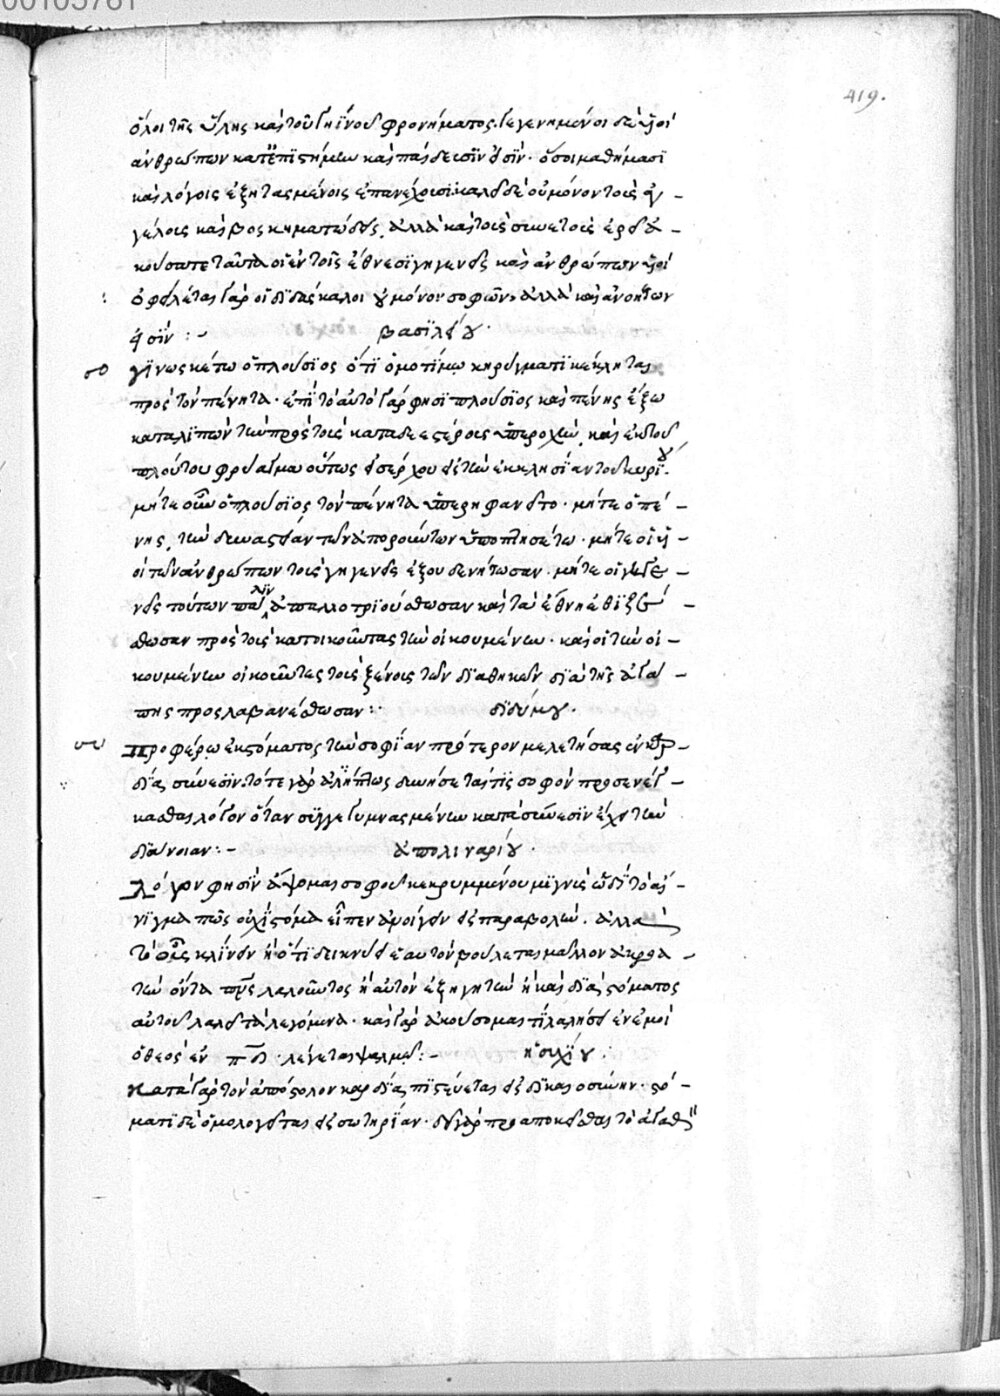 00105781
419.
ὅλοι τῆς ὕλης καὶ τοῦ γηΐνου φρονήματος. γεγενημένοι δὲ υἱοὶ
ἀνθρώπων κατ' ἐπιστήμην καὶ παίδευσίν εἰσιν. ὅσοι μαθήμασι
καὶ λόγοις ἐξητασμένοις ἐπανέχουσι. καλεῖ δὲ οὐ μόνον τοὺς ἀγ-
γέλους καὶ βοσκηματώδεις, ἀλλὰ καὶ τοὺς συνετοὺς ἐρεῖ ἀ-
κούσατε ταῦτα οἱ ἐν τοῖς ἔθνεσι γηγενεῖς καὶ ἀνθρώπων υἱοί
ὀφειλέται γὰρ οἱ διδάσκαλοι οὐ μόνον σοφῶν, ἀλλὰ καὶ ἀνοήτων
εἰσίν :- βασιλείου.
γινωσκέτω ὁ πλούσιος ὅτι ὁμοτίμῳ κηρύγματι κέκληται
πρὸς τὸν πένητα. ἐπὶ τὸ αὐτὸ γάρ φησι πλούσιος καὶ πένης ἔξω
καταλιπὼν τὴν πρὸς τοὺς καταδεεστέρους ὑπεροχὴν, καὶ ἐκ τοῦ
πλούτου φρύαγμα οὕτως εἰσέρχου εἰς τὴν ἐκκλησίαν τοῦ κυρίου.
μήτε οὖν ὁ πλούσιος τὸν πένητα ὑπερηφανείτο. μήτε ὁ πέ-
νης, τὴν δυναστείαν τῶν εὐπορούντων ὑποπτησέτω. μήτε οἱ υἱ-
οὶ τῶν ἀνθρώπων τοὺς γηγενεῖς ἐξουδενήτωσαν. μήτε οἱ γηγε-
νεῖς τούτων πάλιν ἀπαλλοτριούσθωσαν καὶ τὰ ἔθνη ἐθιζέ-
σθωσαν πρὸς τοὺς κατοικοῦντας τὴν οἰκουμένην. καὶ οἱ τὴν οἰ-
κουμένην οἰκοῦντες τοὺς ξένους τῶν διαθηκῶν διὰ τῆς ἀγά-
πης προσλαβανέσθωσαν :- διδύμου.
Προφέρω ἐκ στόματος τὴν σοφίαν πρότερον μελετήσας ἐν καρ-
δίᾳ σύνεσιν. τότε γὰρ ἀλήπτως δυνήσεταί τις σοφὸν προσενέγ-
κασθαι λόγον ὅταν συγγεγυμνασμένην κατὰ σύνεσιν ἔχῃ τὴν
διάνοιαν :- ἀπολιναρίου.
Λόγον φησὶν ἄψομαι σοφοῦ κεκρυμμένου μιγνὺς ᾠδῇ τὸ αἴ-
νιγμα πῶς οὐχὶ στόμα εἶπεν ἀνοίγειν εἰς παραβολὴν. ἀλλὰ
τὸ οὖς κλίνειν ἢ ὅτι δεικνύειν ἑαυτὸν βούλεται μᾶλλον ἀκροα-
τὴν ὄντα τοῦ πνεύματος λαλοῦντος ἢ αὐτὸν ἐξηγητὴν ἢ καὶ διὰ στόματος
αὐτοῦ λαλεῖ τὰ λεγόμενα. καὶ γὰρ ἀκούσομαι τί λαλήσει ἐν ἐμοὶ
ὁ θεὸς ἐν πδ λέγεται ψαλμῷ :- ἡσυχίου.
Κατὰ γὰρ τὸν ἀπόστολον καρδίᾳ πιστεύεται εἰς δικαιοσύνην. στό-
ματι δὲ ὁμολογεῖται εἰς σωτηρίαν. δεῖ γὰρ προαποκεῖσθαι τὸ ἀγαθὸν